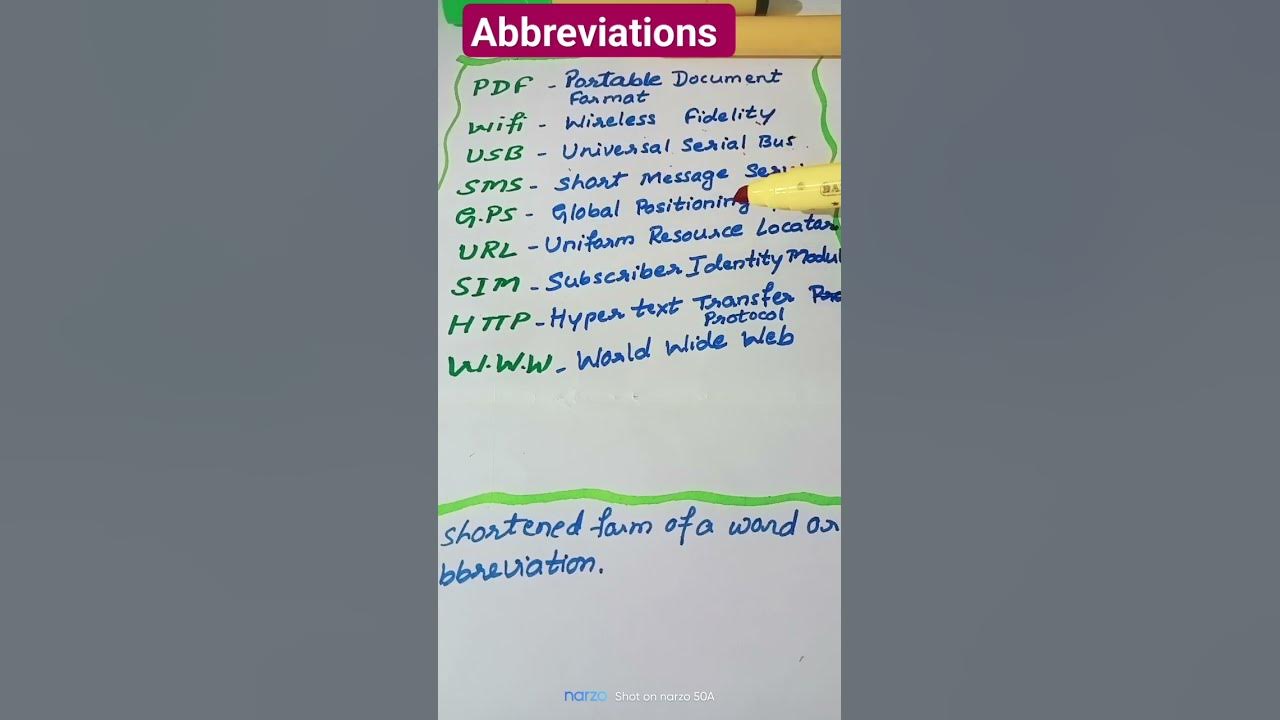 Abbreviations
PDF - Portable Document
Format
Wifi - Wireless Fidelity
USB - Universal Serial Bus
SMS - Short Message
G.PS - Global Positioning
URL - Uniform Resource Locator
SIM - Subscriber Identity Modul
HTTP - Hyper text Transfer
Protocol
W.W.W - World Wide Web
shortened form of a word or
bbreviation.
narzo Shot on narzo 50A